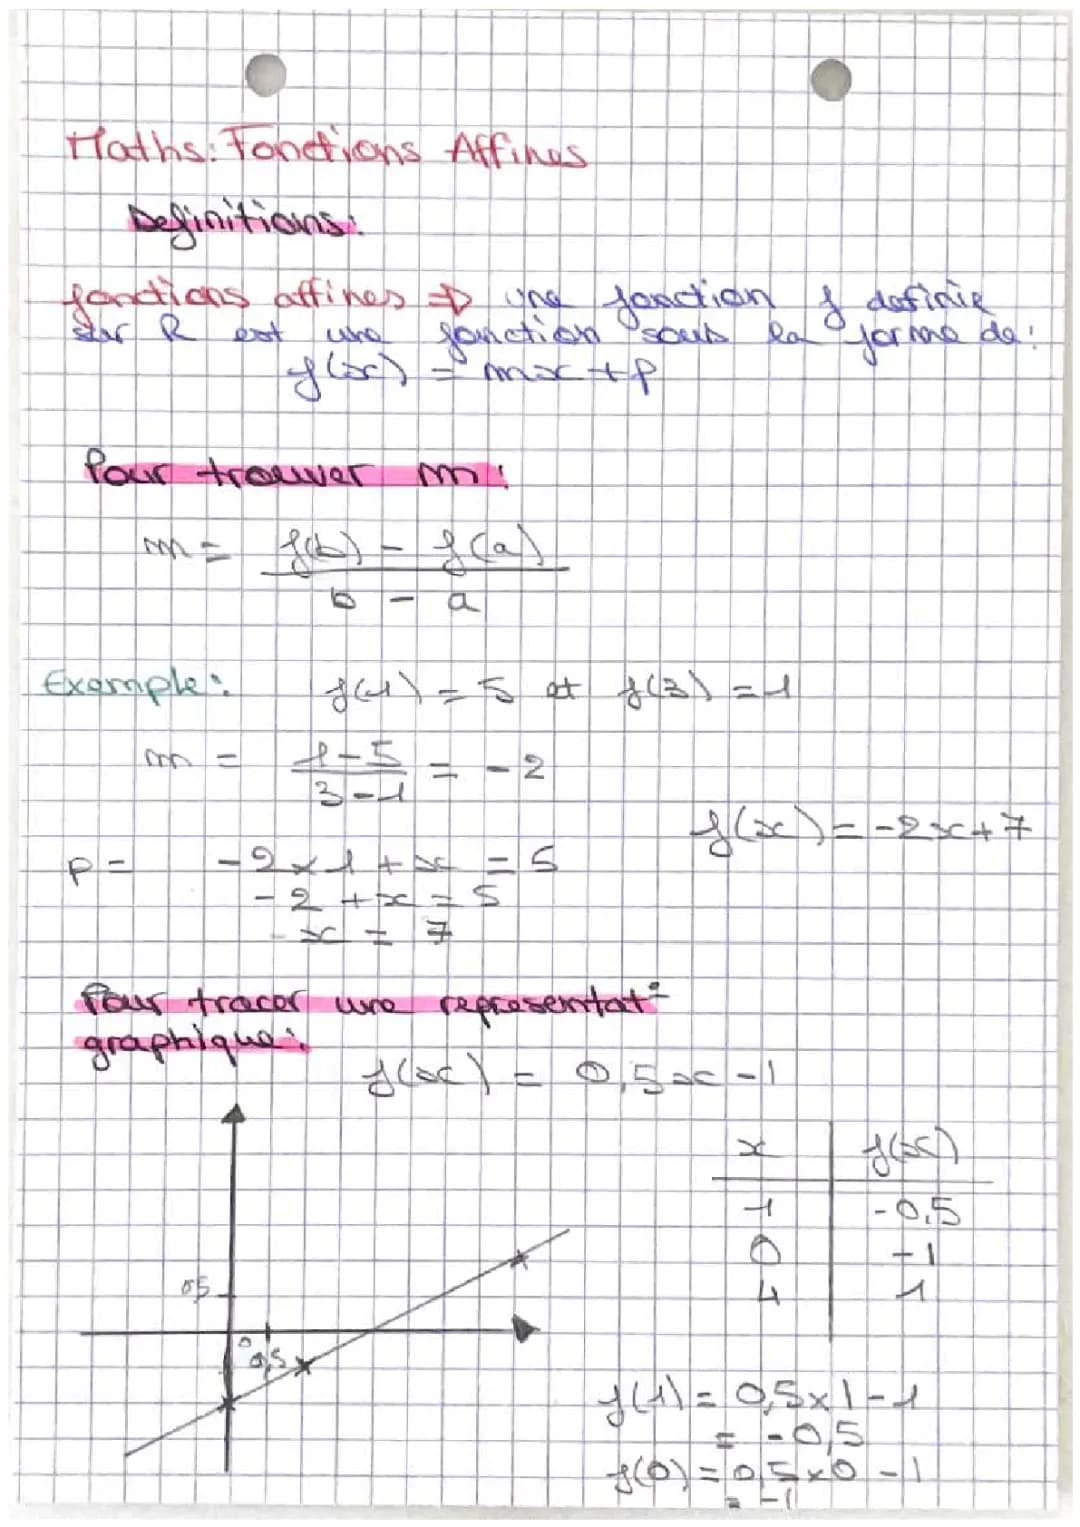 Maths: Fonctions Affines
Definitions:
fonctions affines ⇒ une fonction f definie
sur R est une fonction sous la forme de:
f(x) = mx + p
Pour trouver m:
m = f(b) - f(a)
b - a
Exemple: f(1) = 5 et f(3) = 1
m = 1-5 = -2
3-1
f(x) = -2x+7
p = -2x1 + x = 5
-2 + x = 5
x = 7
Pour tracer une representat°
graphique:
f(x) = 0,5x - 1
x f(x)
1 -0,5
0 -1
4 1
0,5
0
0,5
f(1) = 0,5x1-1
= -0,5
f(0) = 0,5x0 -1
= -1